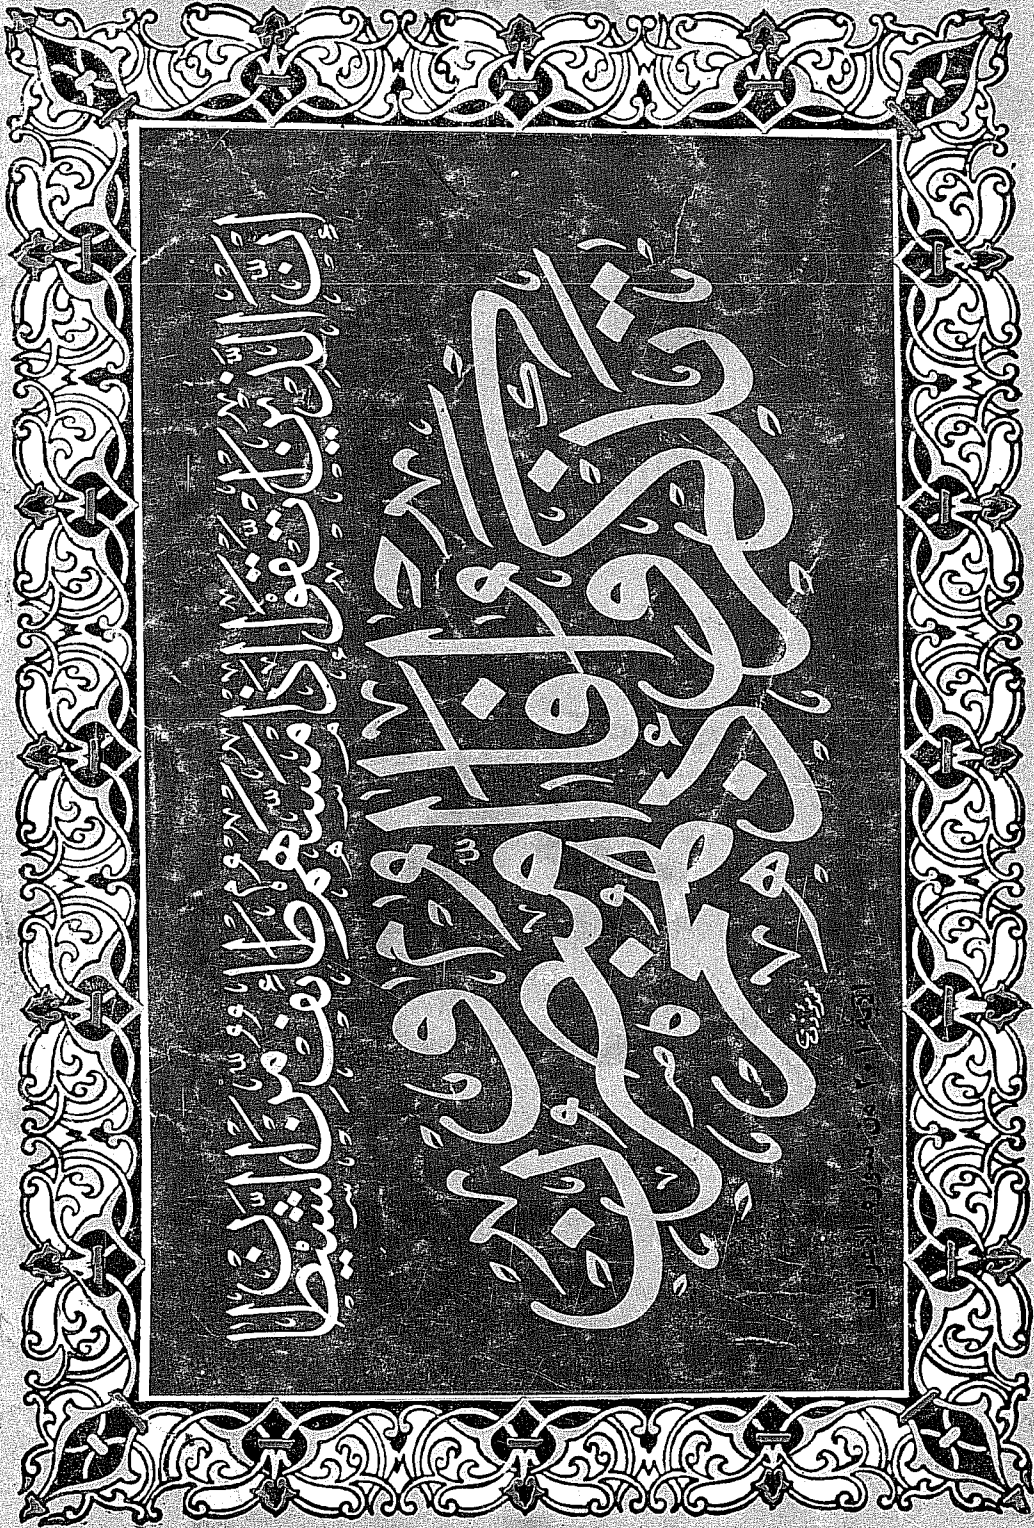 إِنَّ الَّذِينَ اتَّقَوْا إِذَا مَسَّهُمْ طَائِفٌ مِنَ الشَّيْطَانِ
تَذَكَّرُوا فَإِذَا هُمْ مُبْصِرُونَ
الآية ٢٠١ من سورة الأعراف